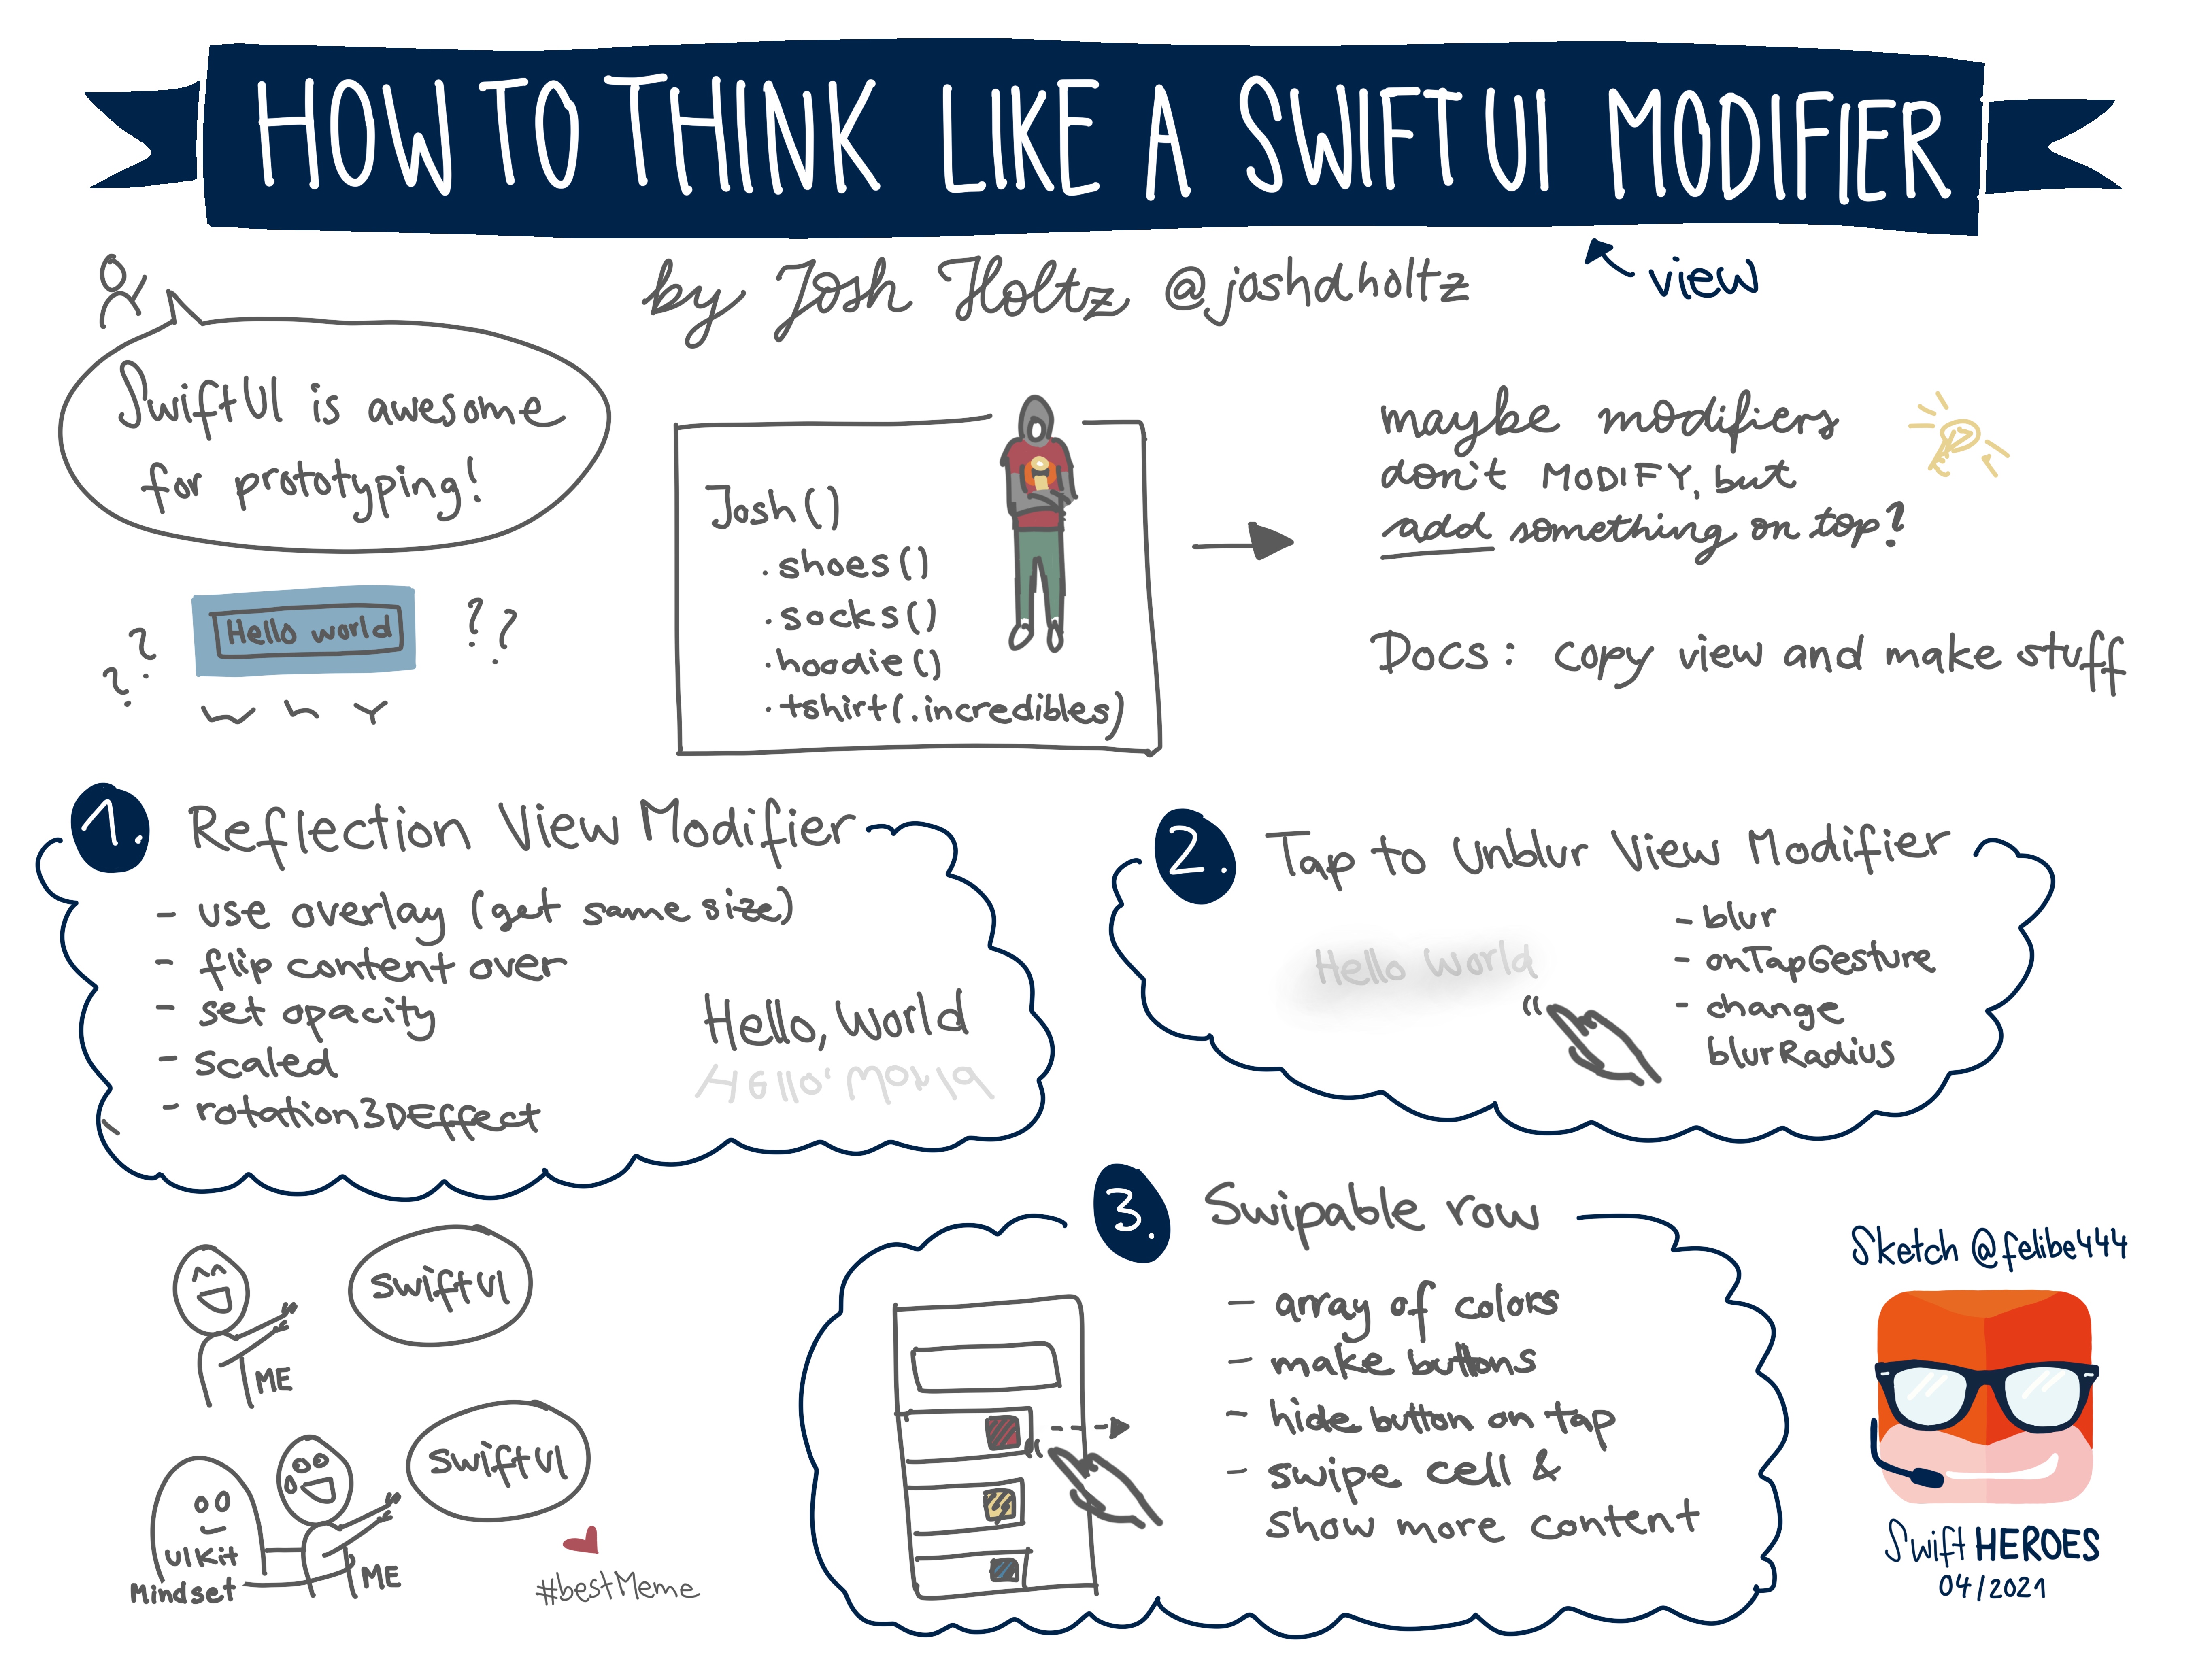 HOW TO THINK LIKE A SWIFTUI MODIFIER
view
by Josh Holtz @joshdholtz
SwiftUI is awesome
for prototyping!
Hello world
? ?
? ?
W h Y
Josh()
.shoes()
.socks()
.hoodie()
.tshirt(.incredibles)
maybe modifiers
don't MODIFY, but
add something on top?
Docs: copy view and make stuff
1. Reflection View Modifier
- use overlay (get same size)
- flip content over
- set opacity
- scaled
- rotation3DEffect
Hello, World
Hello, World
2. Tap to Unblur View Modifier
Hello World
- blur
- onTapGesture
- change
blurRadius
SwiftUI
ME
SwiftUI
UIKit
Mindset
ME
#bestMeme
3. Swipable row
- array of colors
- make buttons
- hide button on tap
- swipe cell &
show more content
Sketch @felibe444
Swift HEROES
04/2021